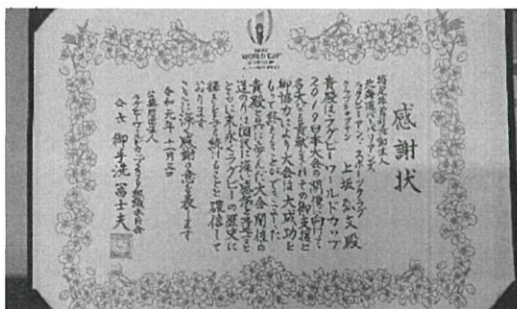 WORLD CUP
感謝状
特定非営利活動法人
北海道バーバリアンズ
ラグビーアンド スポーツクラブ
上坂 殿
貴殿はラグビーワールドカップ
2019日本大会の開催に向けて
多大なる貢献をされその御支援と
御協力により大会は大成功を
もって終えることができました
貴殿と共に歩んだ大会開催の
道のりは国民に深い感動を
とともに末永くラグビーの歴史に
輝き 続けることと確信して
おります
ここに深く感謝の意を表します
令和元年十一月二日
公益財団法人
ラグビーワールドカップ2019組織委員会
会長 御手洗 冨士夫